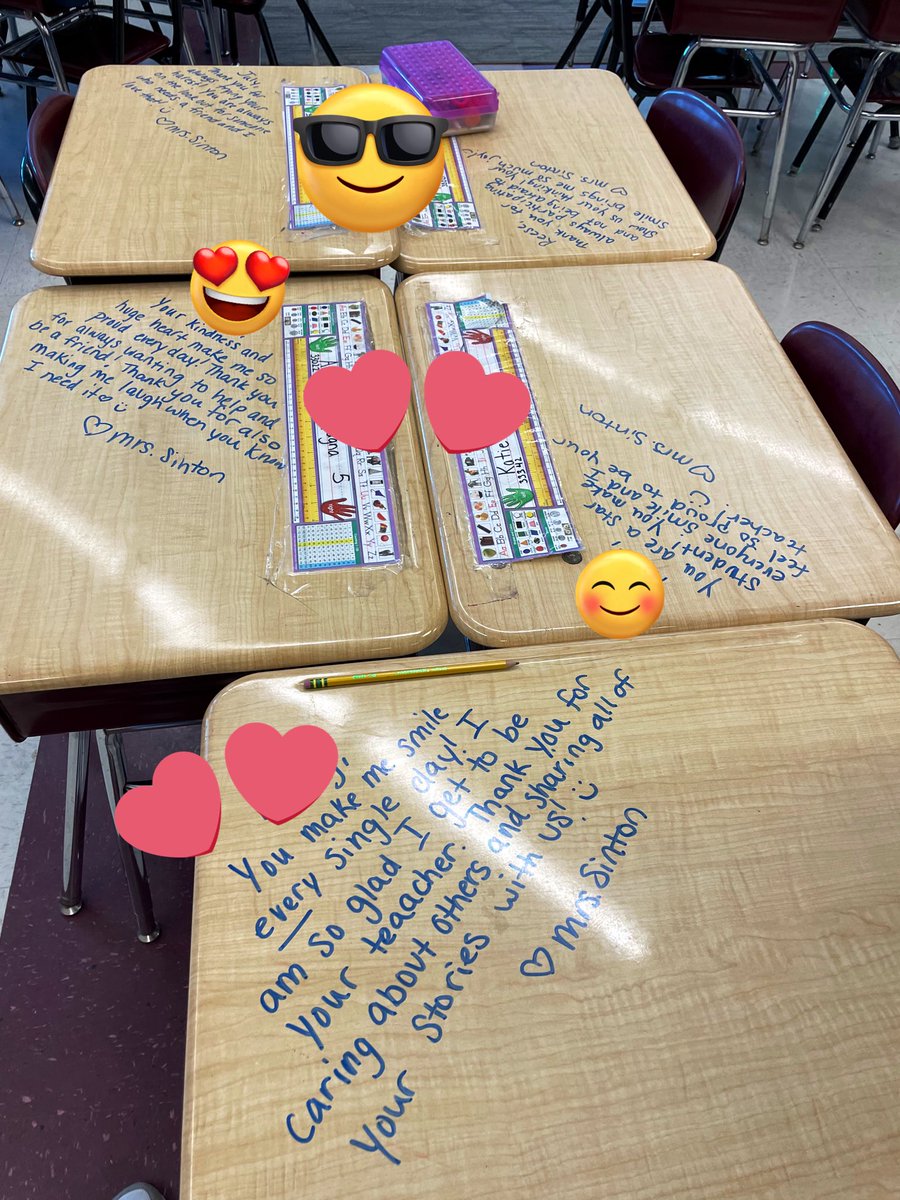 Thank you for
You are always
on the look out for someone
who needs a friend and I
love that!
♡ Mrs. Sinton
Reese,
Thank you for
always participating
and not being afraid to
show us your thinking! Your
smile brings me so much joy!
♡ Mrs. Sinton
Your kindness and
huge heart make me so
proud every day! Thank you
for always wanting to help and
be a friend. Thank you for also
making me laugh when you know
I need it ♡ :)
♡ Mrs. Sinton
5
Katie
You are a star
student! You make
everyone smile and I
feel so proud to be your
teacher! :)
♡ Mrs. Sinton
You make me smile
every single day! I
am so glad I get to be
your teaacher. Thank you for
caring about others and sharing all of
your stories with us! :)
♡ Mrs. Sinton